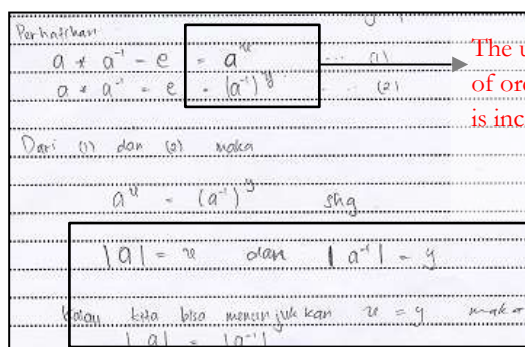 Perhatikan
a * a⁻¹ = e = aⁿ ... (1)
a * a⁻¹ = e = (a⁻¹)ʸ ... (2)
The u
of ord
is inc
Dari (1) dan (2) maka
aⁿ = (a⁻¹)ʸ shg
|a| = n dan |a⁻¹| = y
kalau kita bisa menunjukkan n = y maka
|a| = |a⁻¹|